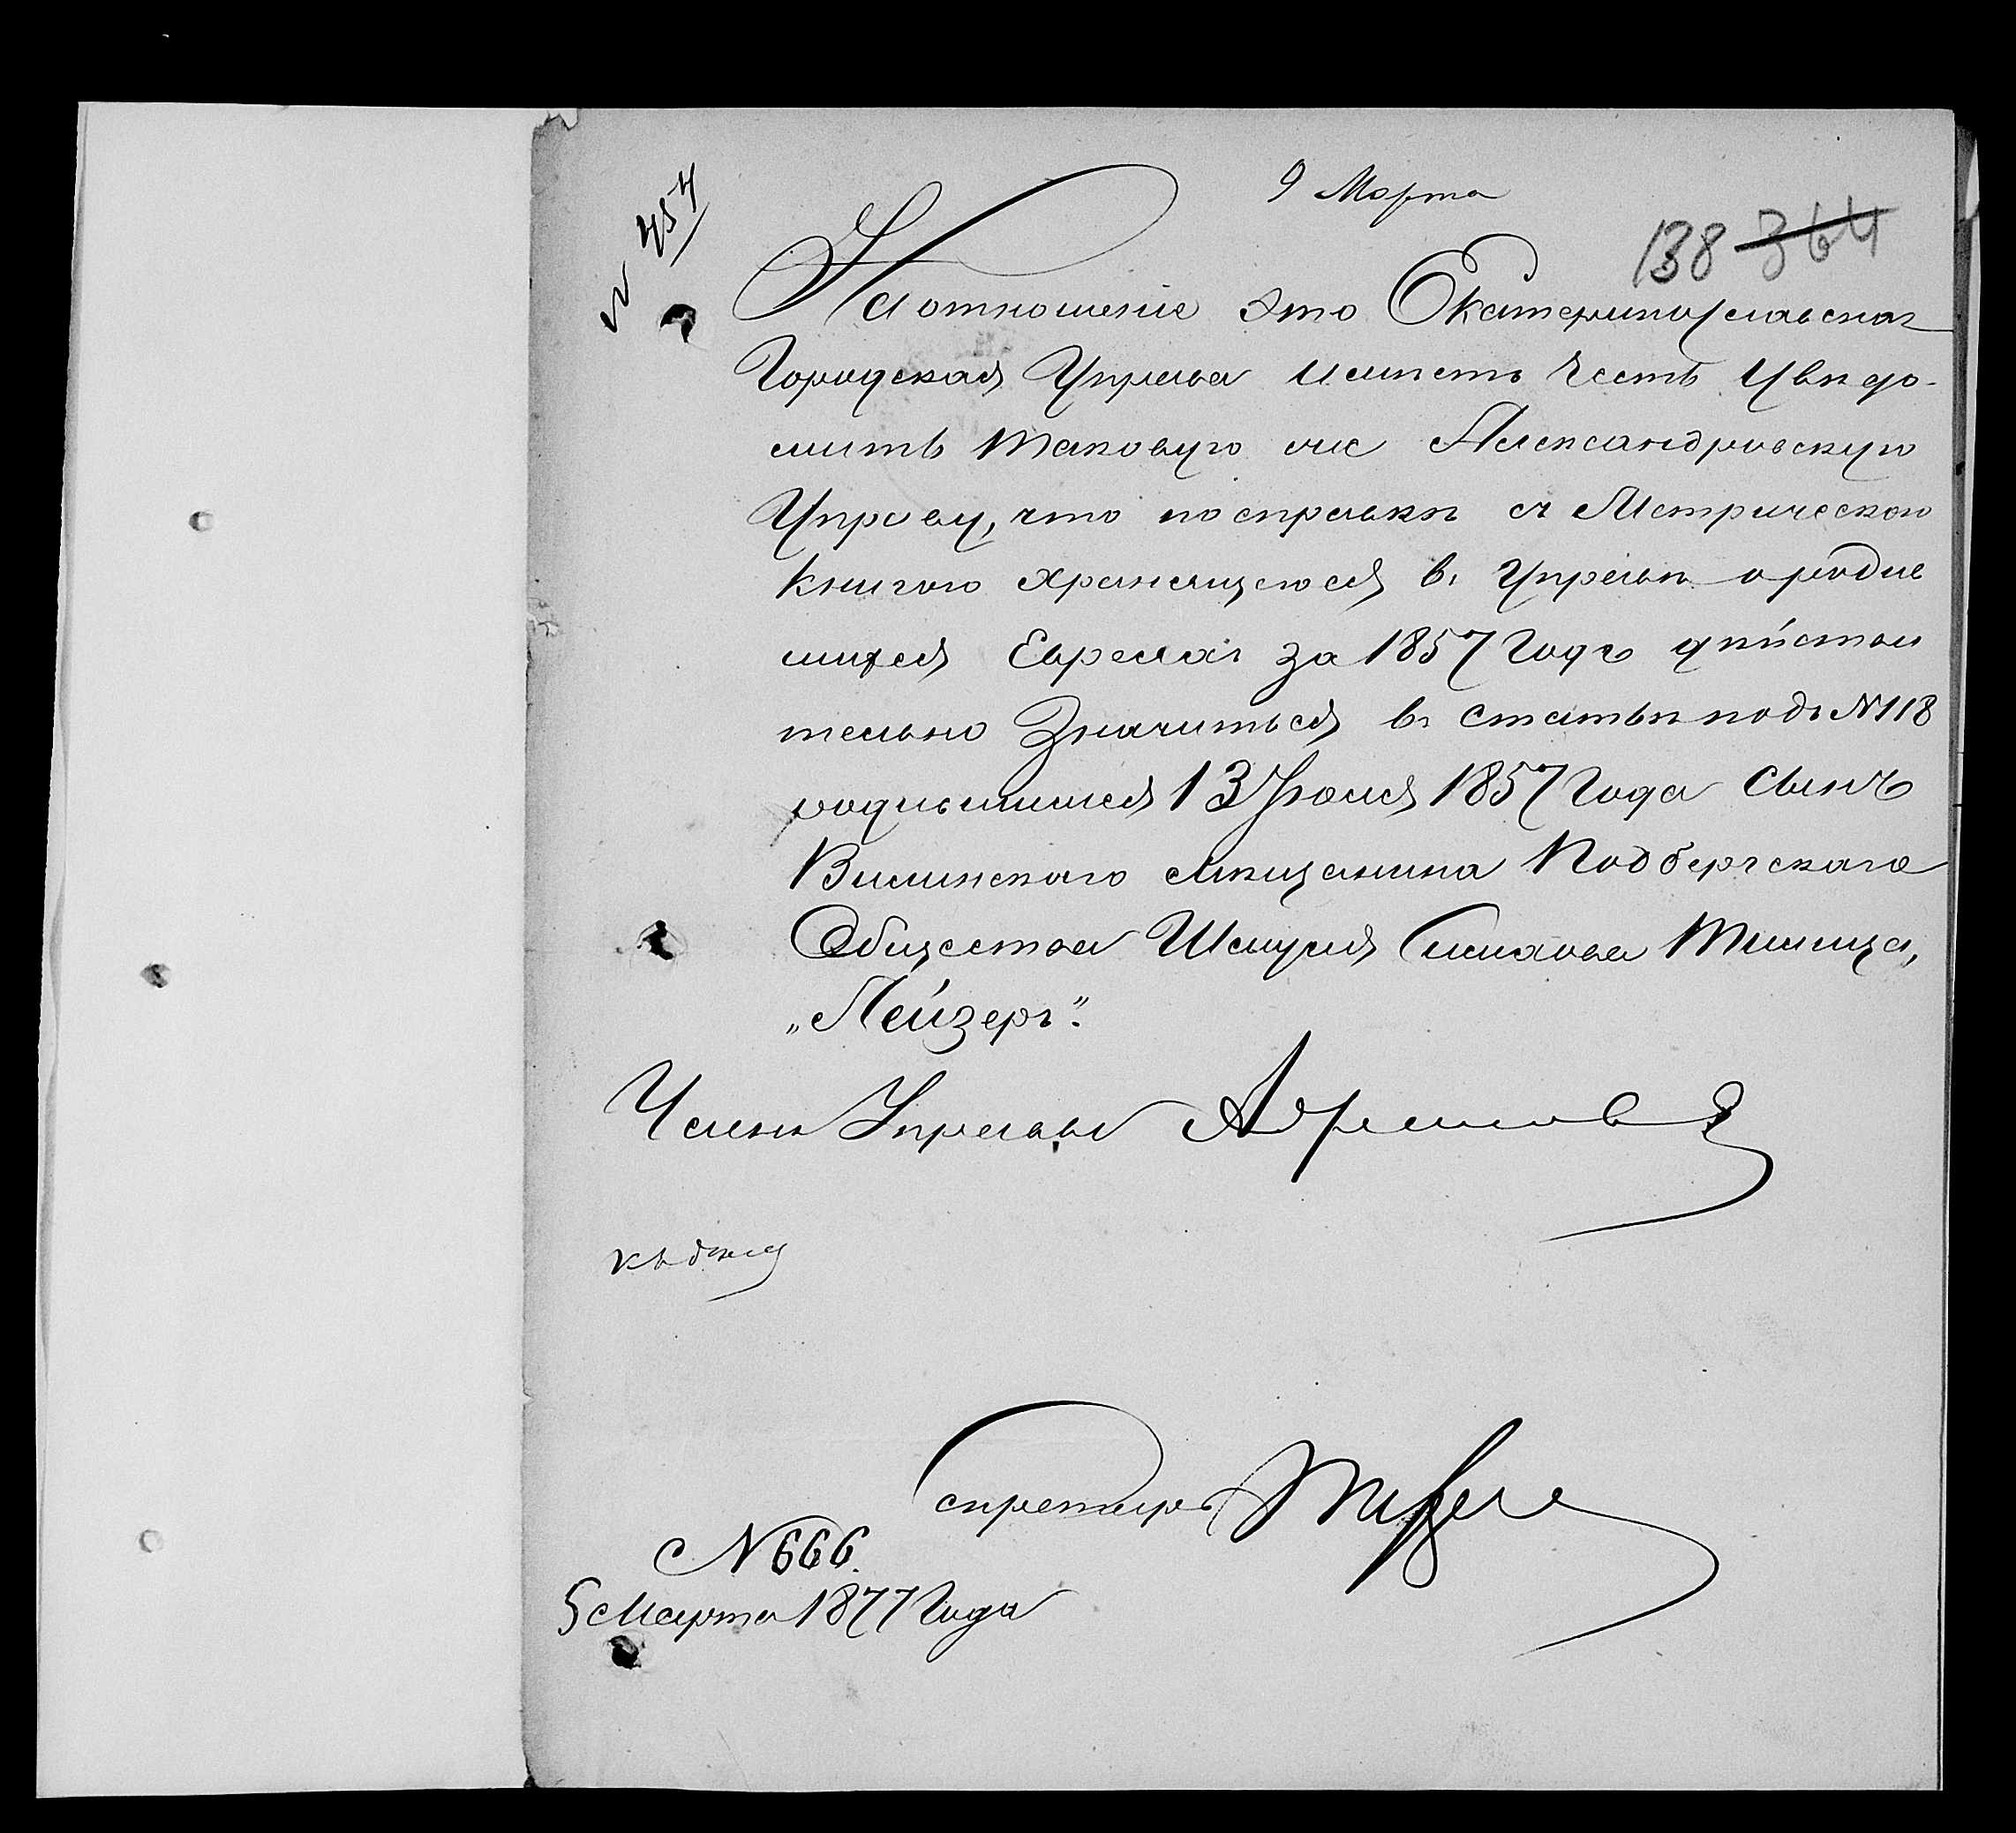 9 Марта
№ 457
138 364
На отношеніе это Екатеринославская
Городская Управа имѣетъ честь увѣдо-
мить таковую же Александровскую
Управу, что по справкѣ съ Метрическою
книгою хранящеюся въ Управѣ о родив
шихся Евреяхъ за 1857 годъ дѣйстви
тельно значиться въ статьѣ подъ №118
родившимся 13 Іюля 1857 года сынъ
Виленскаго мѣщанина Подберезскаго
Общества Шмуля
„Лейзеръ".
Членъ Управы
къ дѣлу
Секретарь
№ 666.
5 Марта 1877 года